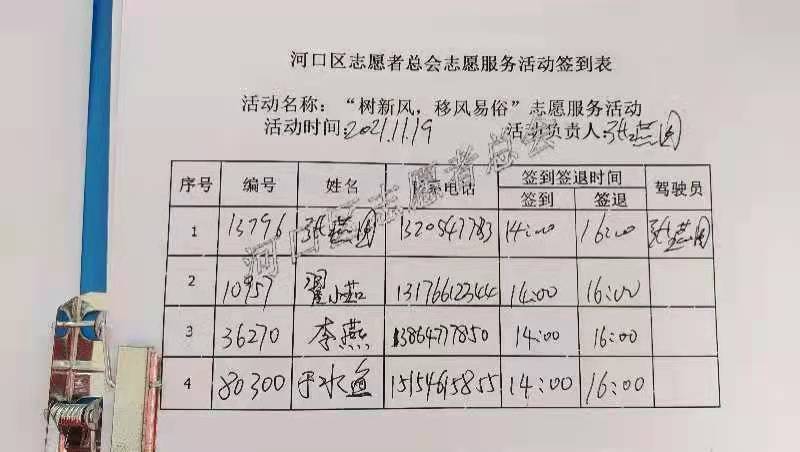 河口区志愿者总会志愿服务活动签到表
活动名称：“树新风，移风易俗”志愿服务活动
活动时间：2021.11.19 活动负责人：张燕国
序号 编号 姓名 联系电话 签到签退时间 驾驶员
签到 签退
1 13796 张燕国 1320547783 14:00 16:00 张燕国
2 10957 翟小茹 13176612344 14:00 16:00
3 36270 李燕 13864777850 14:00 16:00
4 80300 于水鱼 15154615855 14:00 16:00
河口区志愿者总会